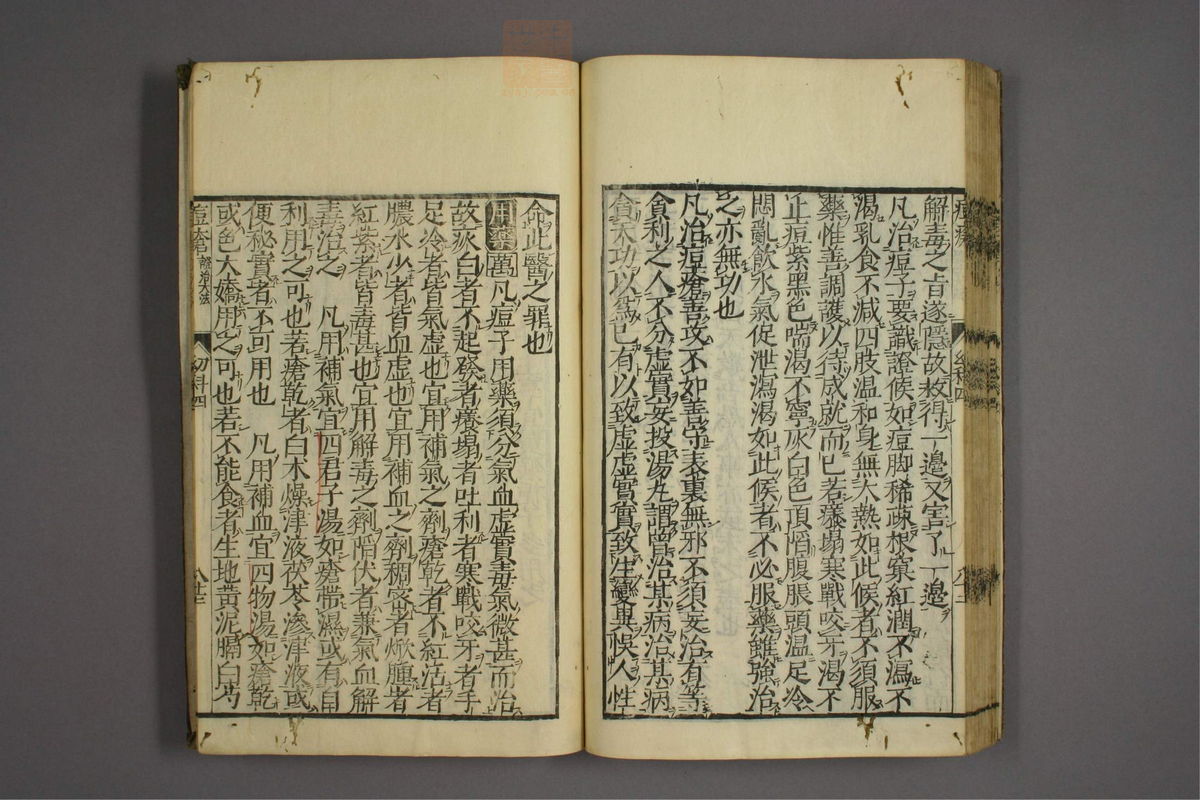 解毒之盲遂隱故救得一邊又害了一邊
凡治痘子要識證候如痘脚稀疎根窠紅潤不瀉不
渴乳食不減四肢溫和身無大熱如此候者不須服
藥惟善調護以待成就而已若癢塌寒戰咬牙渴不
止痘紫黑色喘渴不寧灰白色頂陷腹脹頭溫足冷
悶亂飲水氣促泄瀉渴如此候者不必服藥雖強治
之亦無功也
凡治痘瘡善攻不如善守表裏無邪不須妄治有等
貪利之人不分虛實妄投湯丸謂曾治某病治某病
貪天功以爲已有以致虛虛實實致生變異悞人性
命此醫之罪也
用藥萬凡痘子用藥須分氣血虛實毒氣微甚而治
故灰白者不起發者癢塌者吐利者寒戰咬牙者手
足冷者皆氣虛也宜用補氣之劑瘡乾者不紅活者
膿水少者皆血虛也宜用補血之劑稠密者焮腫者
紅紫者皆毒甚也宜用解毒之劑陷伏者兼氣血解
毒治之 凡用補氣宜四君子湯如瘡帶濕或有自
利用之可也若瘡乾者白朮燥津液茯苓滲津液或
便秘實者不可用也 凡用補血宜四物湯如瘡乾
或色大嬌用之可也若不能食者生地黃泥膈白芍
痘瘡 治大法 幼科四